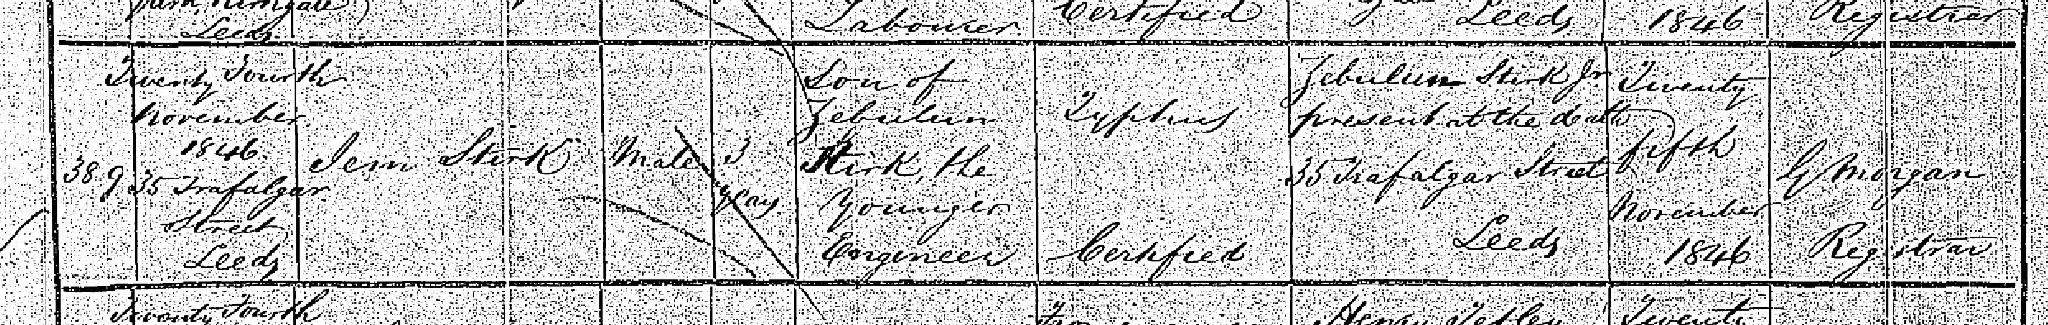 Leeds
Labourer
Certified
Leeds
1846
Registrar
389
Twenty Fourth
November
1846
35 Trafalgar
Street
Leeds
Jem Stirk
Male
3
years
Son of
Zebulum
Stirk, the
Younger
Engineer
Typhus
Certified
Zebulum Stirk Jr
present at the death
35 Trafalgar Street
Leeds
Twenty
fifth
November
1846
G Morgan
Registrar
Twenty Fourth
Henry Tetley
Twenty